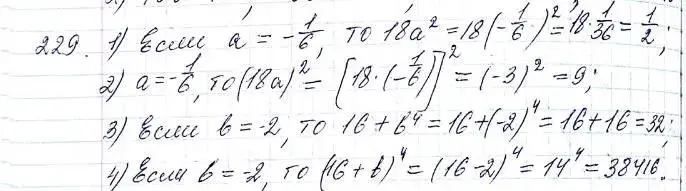 229. 1) Если a = -1/6, то 18a² = 18(-1/6)² = 18·1/36 = 1/2;
2) a = -1/6, то (18a)² = [18·(-1/6)]² = (-3)² = 9;
3) Если b = -2, то 16 + b⁴ = 16 + (-2)⁴ = 16 + 16 = 32;
4) Если b = -2, то (16 + b)⁴ = (16 - 2)⁴ = 14⁴ = 38416.